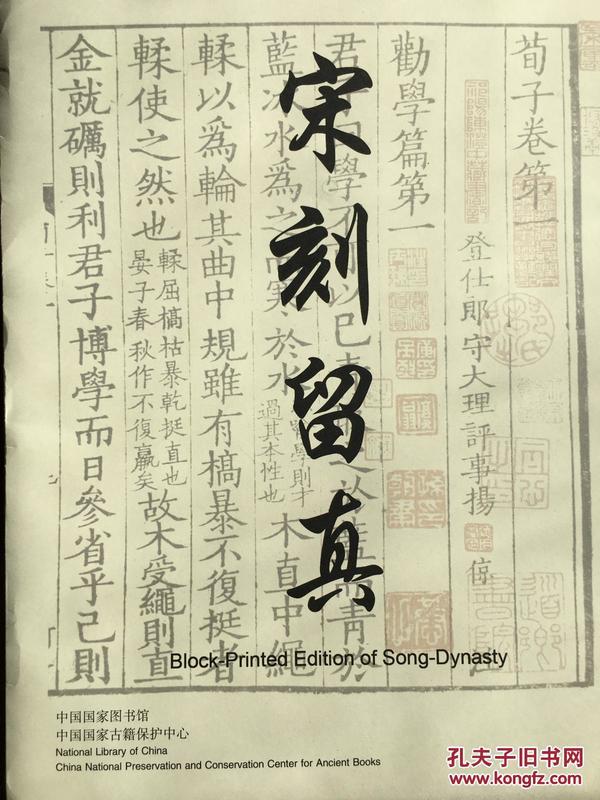 宋刻留真
Block-Printed Edition of Song-Dynasty
荀子卷第一
登仕郎守大理評事揚 倞
勸學篇第一
君子曰學不可以已青
於
藍冰水為之而寒於水
過其本性也
木直中繩
輮以為輪其曲中規雖有槁暴不復挺者
輮使之然也
輮屈槁枯暴乾挺直也
晏子春秋作不復贏矣
故木受繩則直
金就礪則利君子博學而日參省乎己則
中国国家图书馆
中国国家古籍保护中心
National Library of China
China National Preservation and Conservation Center for Ancient Books
孔夫子旧书网
www.kongfz.com